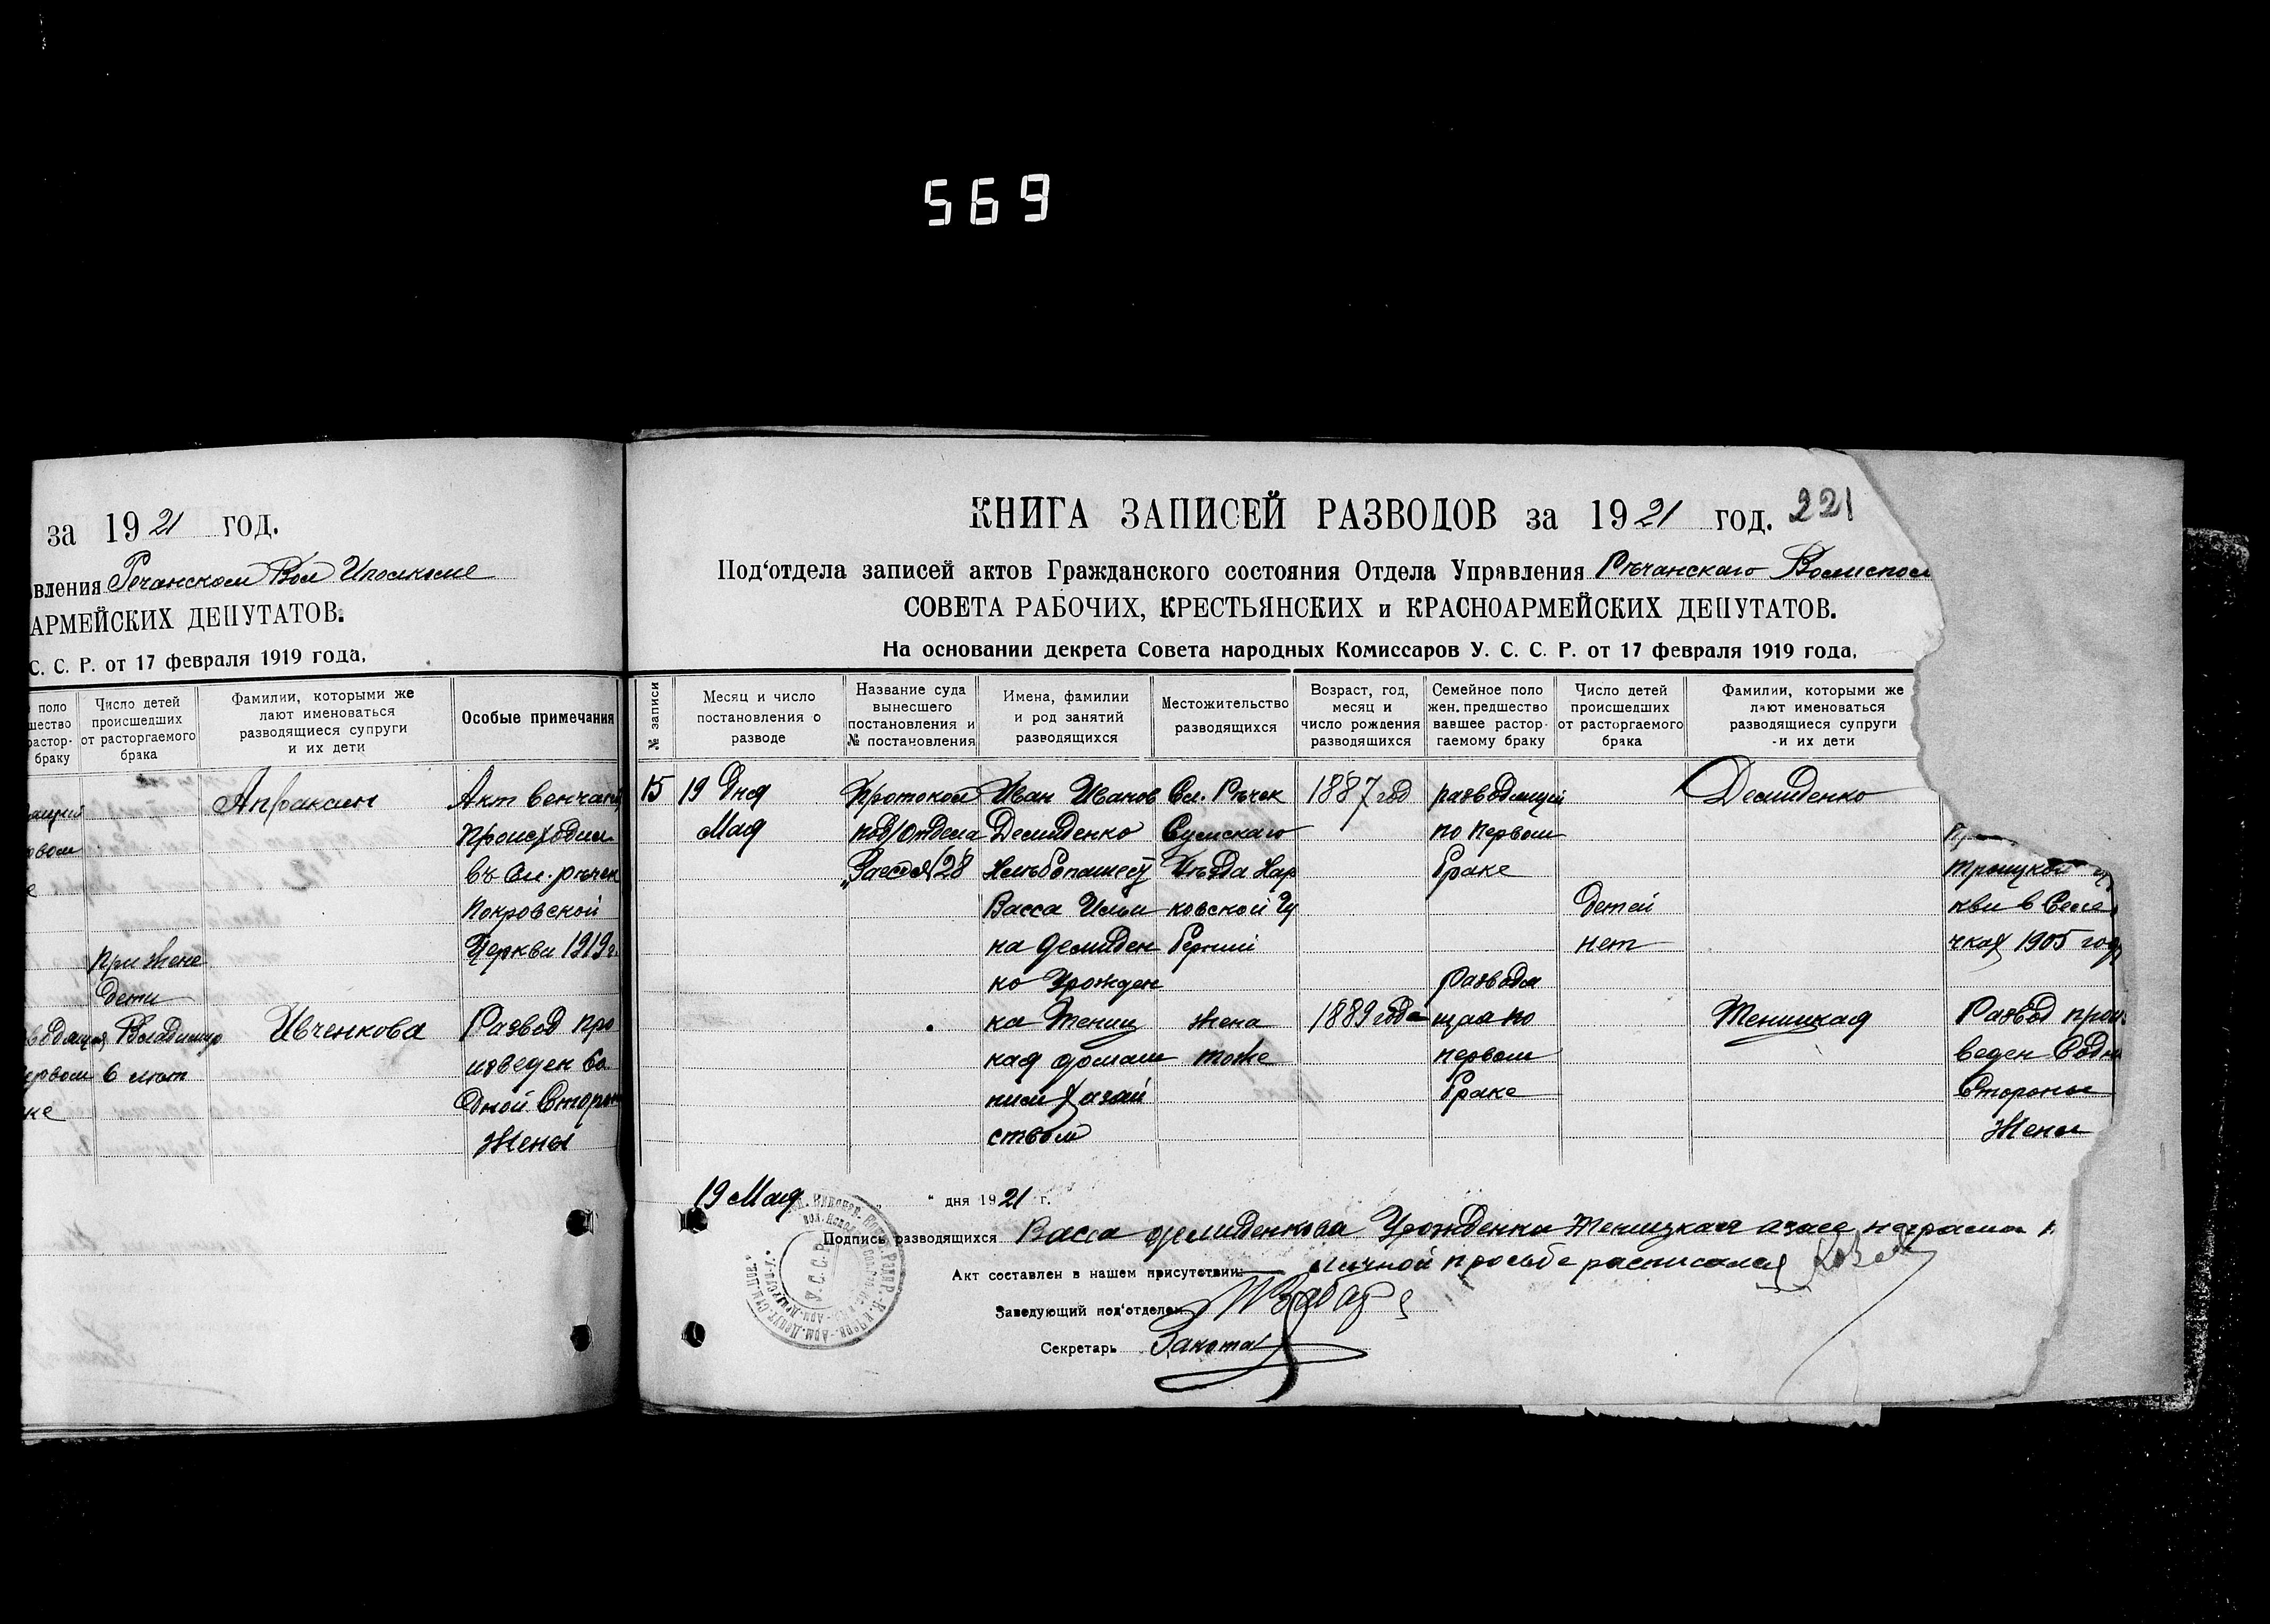 569
за 1921 год.
вления Речанском Вол Иполкоме
АРМЕЙСКИХ ДЕПУТАТОВ.
С. С. Р. от 17 февраля 1919 года,
поло
шество
растор-
браку
Число детей
происшедших
от расторгаемого
брака
Фамилии, которыми же
лают именоваться
разводящиеся супруги
и их дети
Особые примечания
при жене
дети
Владимир
6 лет
Апраксин
Ивченкова
Акт венчания
происходил
въ сл. речек
покровской
Церкви 1919 г.
Развод про
изведен со
дной сторон
Жены
КНИГА ЗАПИСЕЙ РАЗВОДОВ за 1921 год. 221
Под‘отдела записей актов Гражданского состояния Отдела Управления Речанскаго Волиспол
СОВЕТА РАБОЧИХ, КРЕСТЬЯНСКИХ и КРАСНОАРМЕЙСКИХ ДЕПУТАТОВ.
На основании декрета Совета народных Комиссаров У. С. С. Р. от 17 февраля 1919 года,
№ записи
Месяц и число
постановления о
разводе
Название суда
вынесшего
постановления и
№ постановления
Имена, фамилии
и род занятий
разводящихся
Местожительство
разводящихся
Возраст, год,
месяц и
число рождения
разводящихся
Семейное поло
жен. предшество
вавшее растор-
гаемому браку
Число детей
происшедших
от расторгаемого
брака
Фамилии, которыми же
лают именоваться
разводящиеся супруги
и их дети
15
19 Дня
Мая
Протокол
под/Отдела
28
Иван Иванов
Демиденко
Хлебопашест
Васса Ильи
на Демиден
ко Урожден
ка Тениц
кая домаш
ним хазяй
ством
Сл. Речек
Сумскаго
Уезда Хар
ковской Гу
бернии
жена
тоже
1887 год
1889 года
разводящий
по первом
браке
Разводя
щая по
первом
браке
детей
нет
Демиденко
Теницкая
троицкой ц
кви в Селе
чках 1905 год
Развод прои
веден Содн
Стороны
Жены
19 Мая " дня 1921 г.
Подпись разводящихся Васса Демиденкова Урожденка Теницкая а за ее неграмот
личной просьбе расписался
Акт составлен в нашем присутствии:
Заведующий под‘отделом
Секретарь Закота
У.С.С.Р.